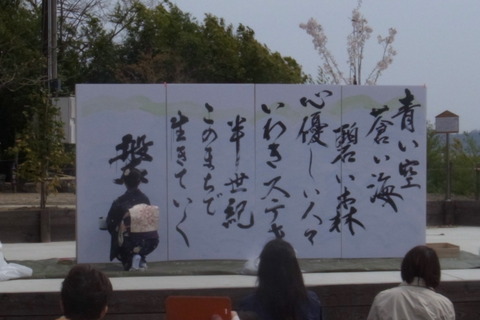 青い空
蒼い海
碧い森
心優しい人々
いわきステキ
半世紀
このまちで
生きていく